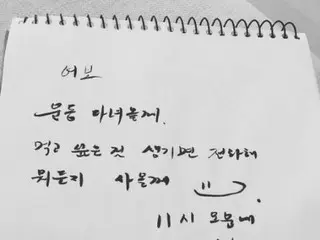 여보
운동 다녀올게.
먹고 싶은 것 생기면 전화해
뭐든지 사올게
11시